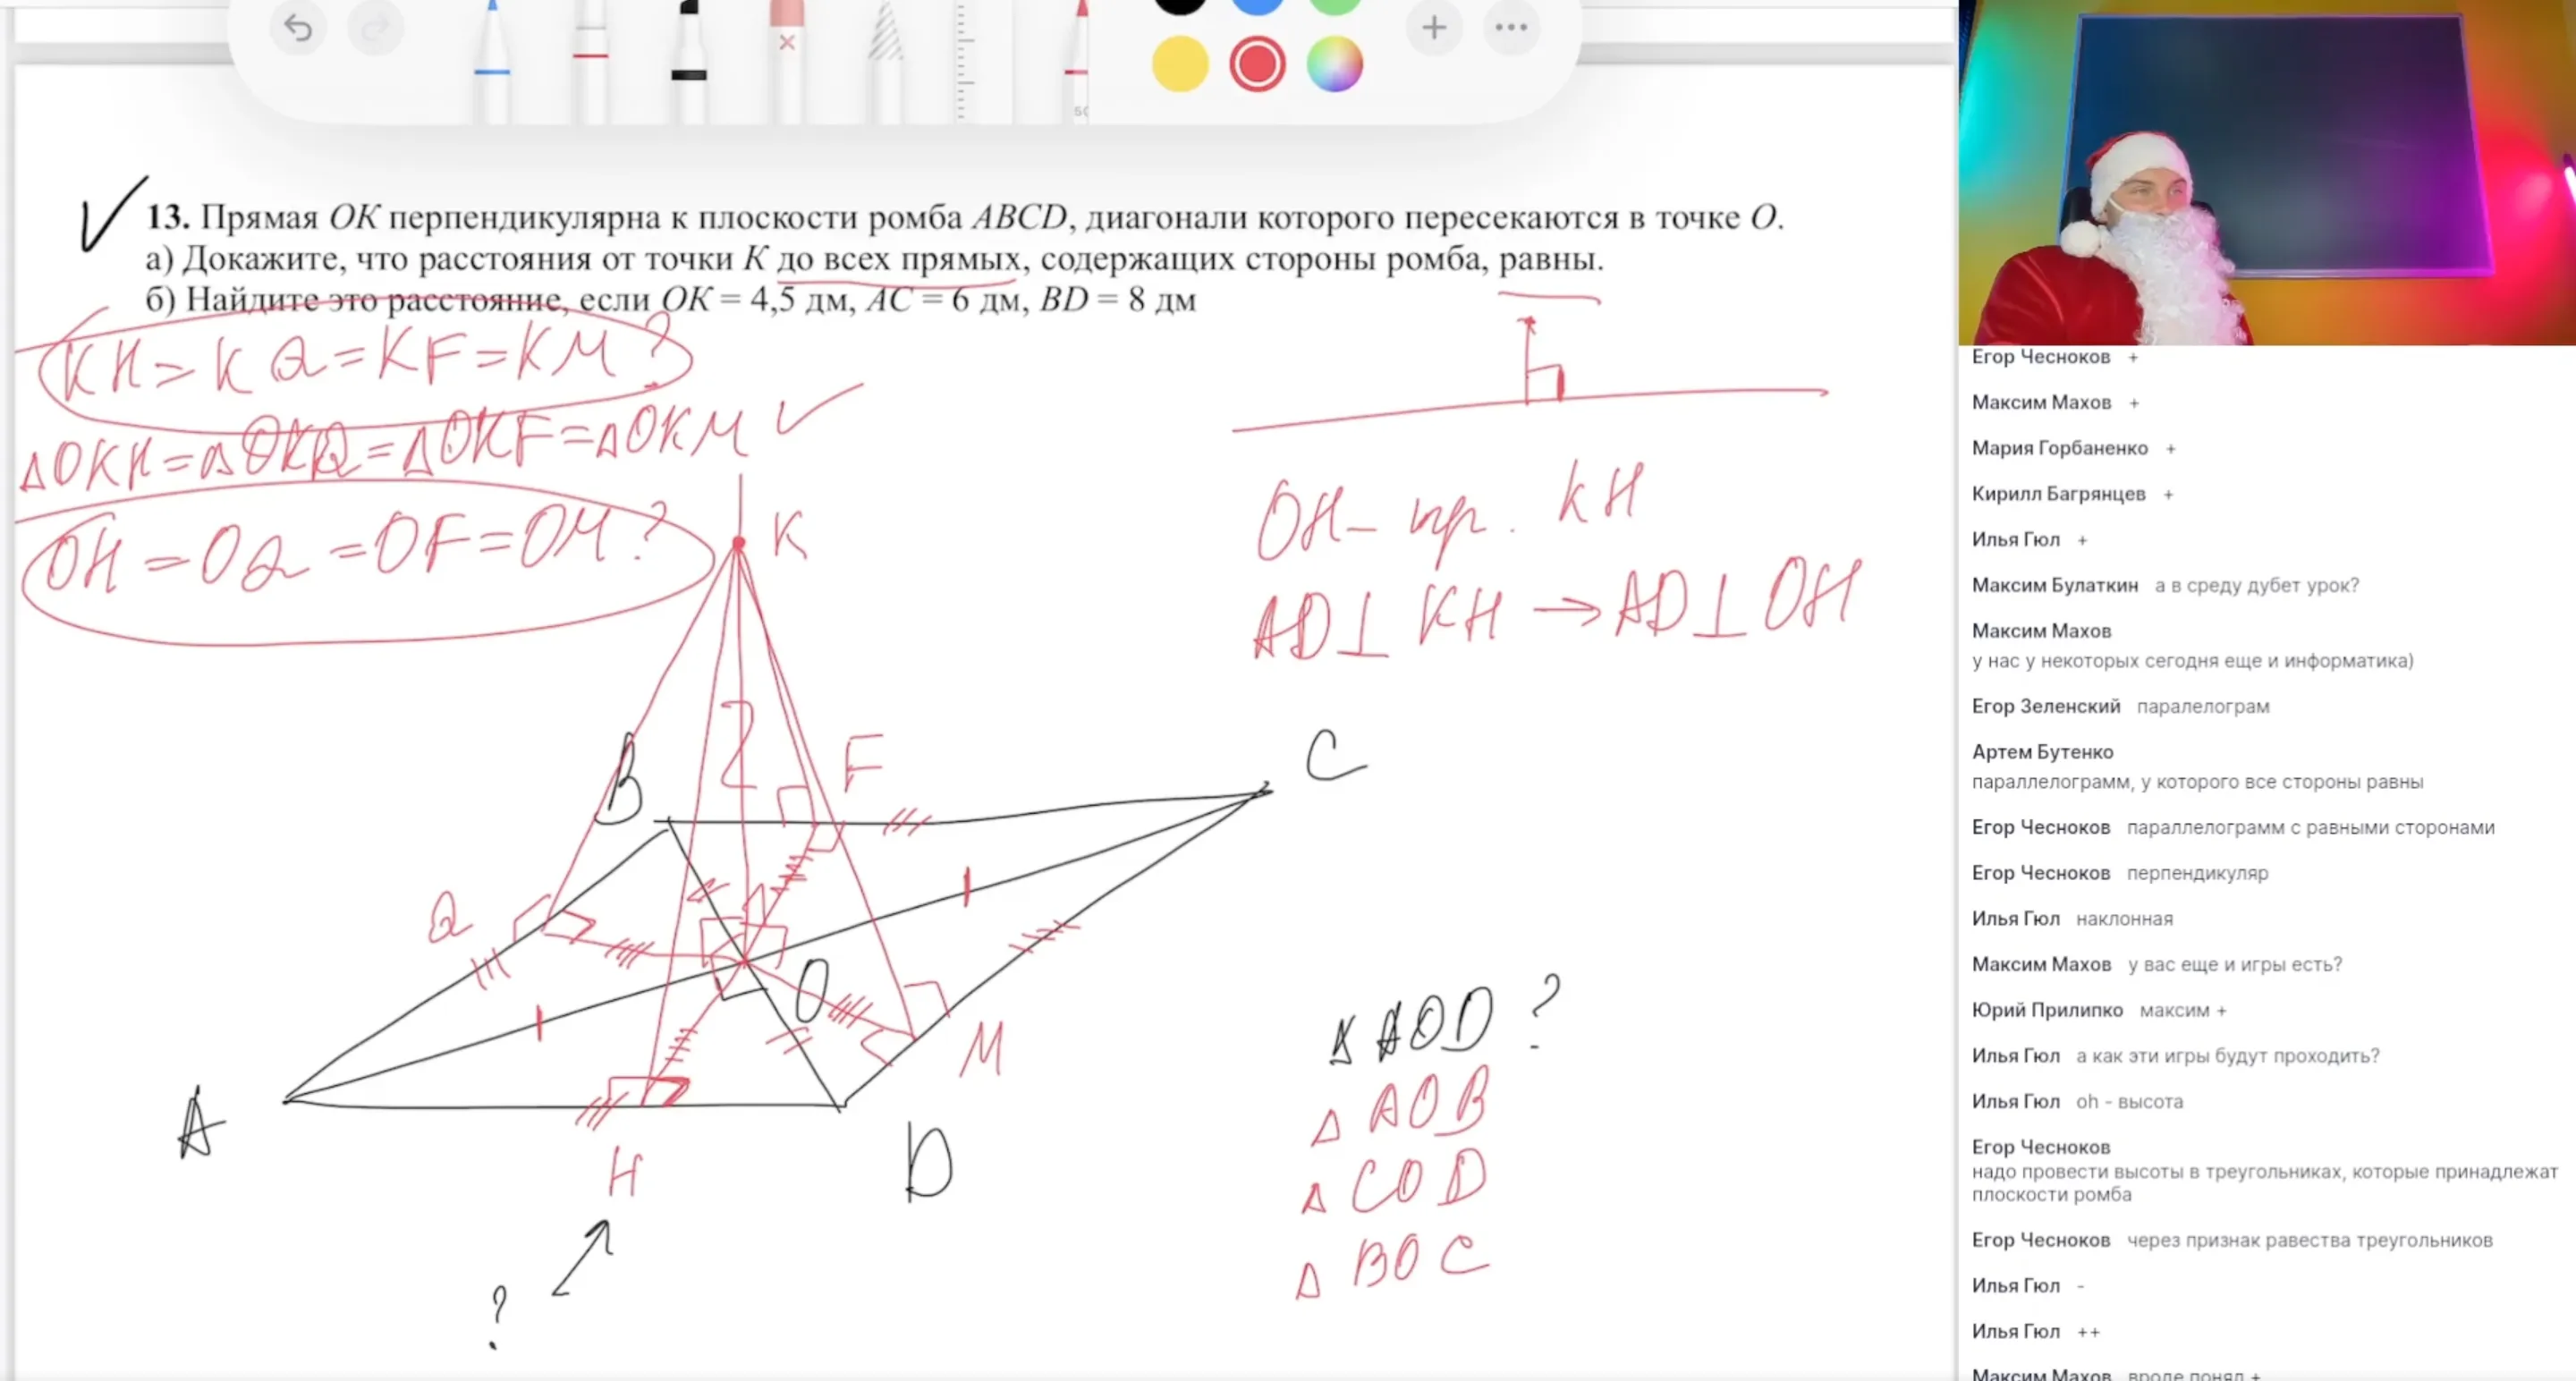 13. Прямая OK перпендикулярна к плоскости ромба ABCD, диагонали которого пересекаются в точке O.
а) Докажите, что расстояния от точки K до всех прямых, содержащих стороны ромба, равны.
б) Найдите это расстояние, если OK = 4,5 дм, AC = 6 дм, BD = 8 дм
KH = KQ = KF = KM ?
ΔOKH = ΔOKQ = ΔOKF = ΔOKM
OH = OQ = OF = OM ?
OH – пр. KH
AD ⊥ KH → AD ⊥ OH
K
B
F
C
Q
O
M
A
H
D
?
Δ AOD ?
Δ AOB
Δ COD
Δ BOC
Егор Чесноков +
Максим Махов +
Мария Горбаненко +
Кирилл Багрянцев +
Илья Гюл +
Максим Булаткин а в среду дубет урок?
Максим Махов
у нас у некоторых сегодня еще и информатика)
Егор Зеленский паралелограм
Артем Бутенко
параллелограмм, у которого все стороны равны
Егор Чесноков параллелограмм с равными сторонами
Егор Чесноков перпендикуляр
Илья Гюл наклонная
Максим Махов у вас еще и игры есть?
Юрий Прилипко максим +
Илья Гюл а как эти игры будут проходить?
Илья Гюл oh - высота
Егор Чесноков
надо провести высоты в треугольниках, которые принадлежат
плоскости ромба
Егор Чесноков через признак равества треугольников
Илья Гюл -
Илья Гюл ++
Максим Махов вроде понял +